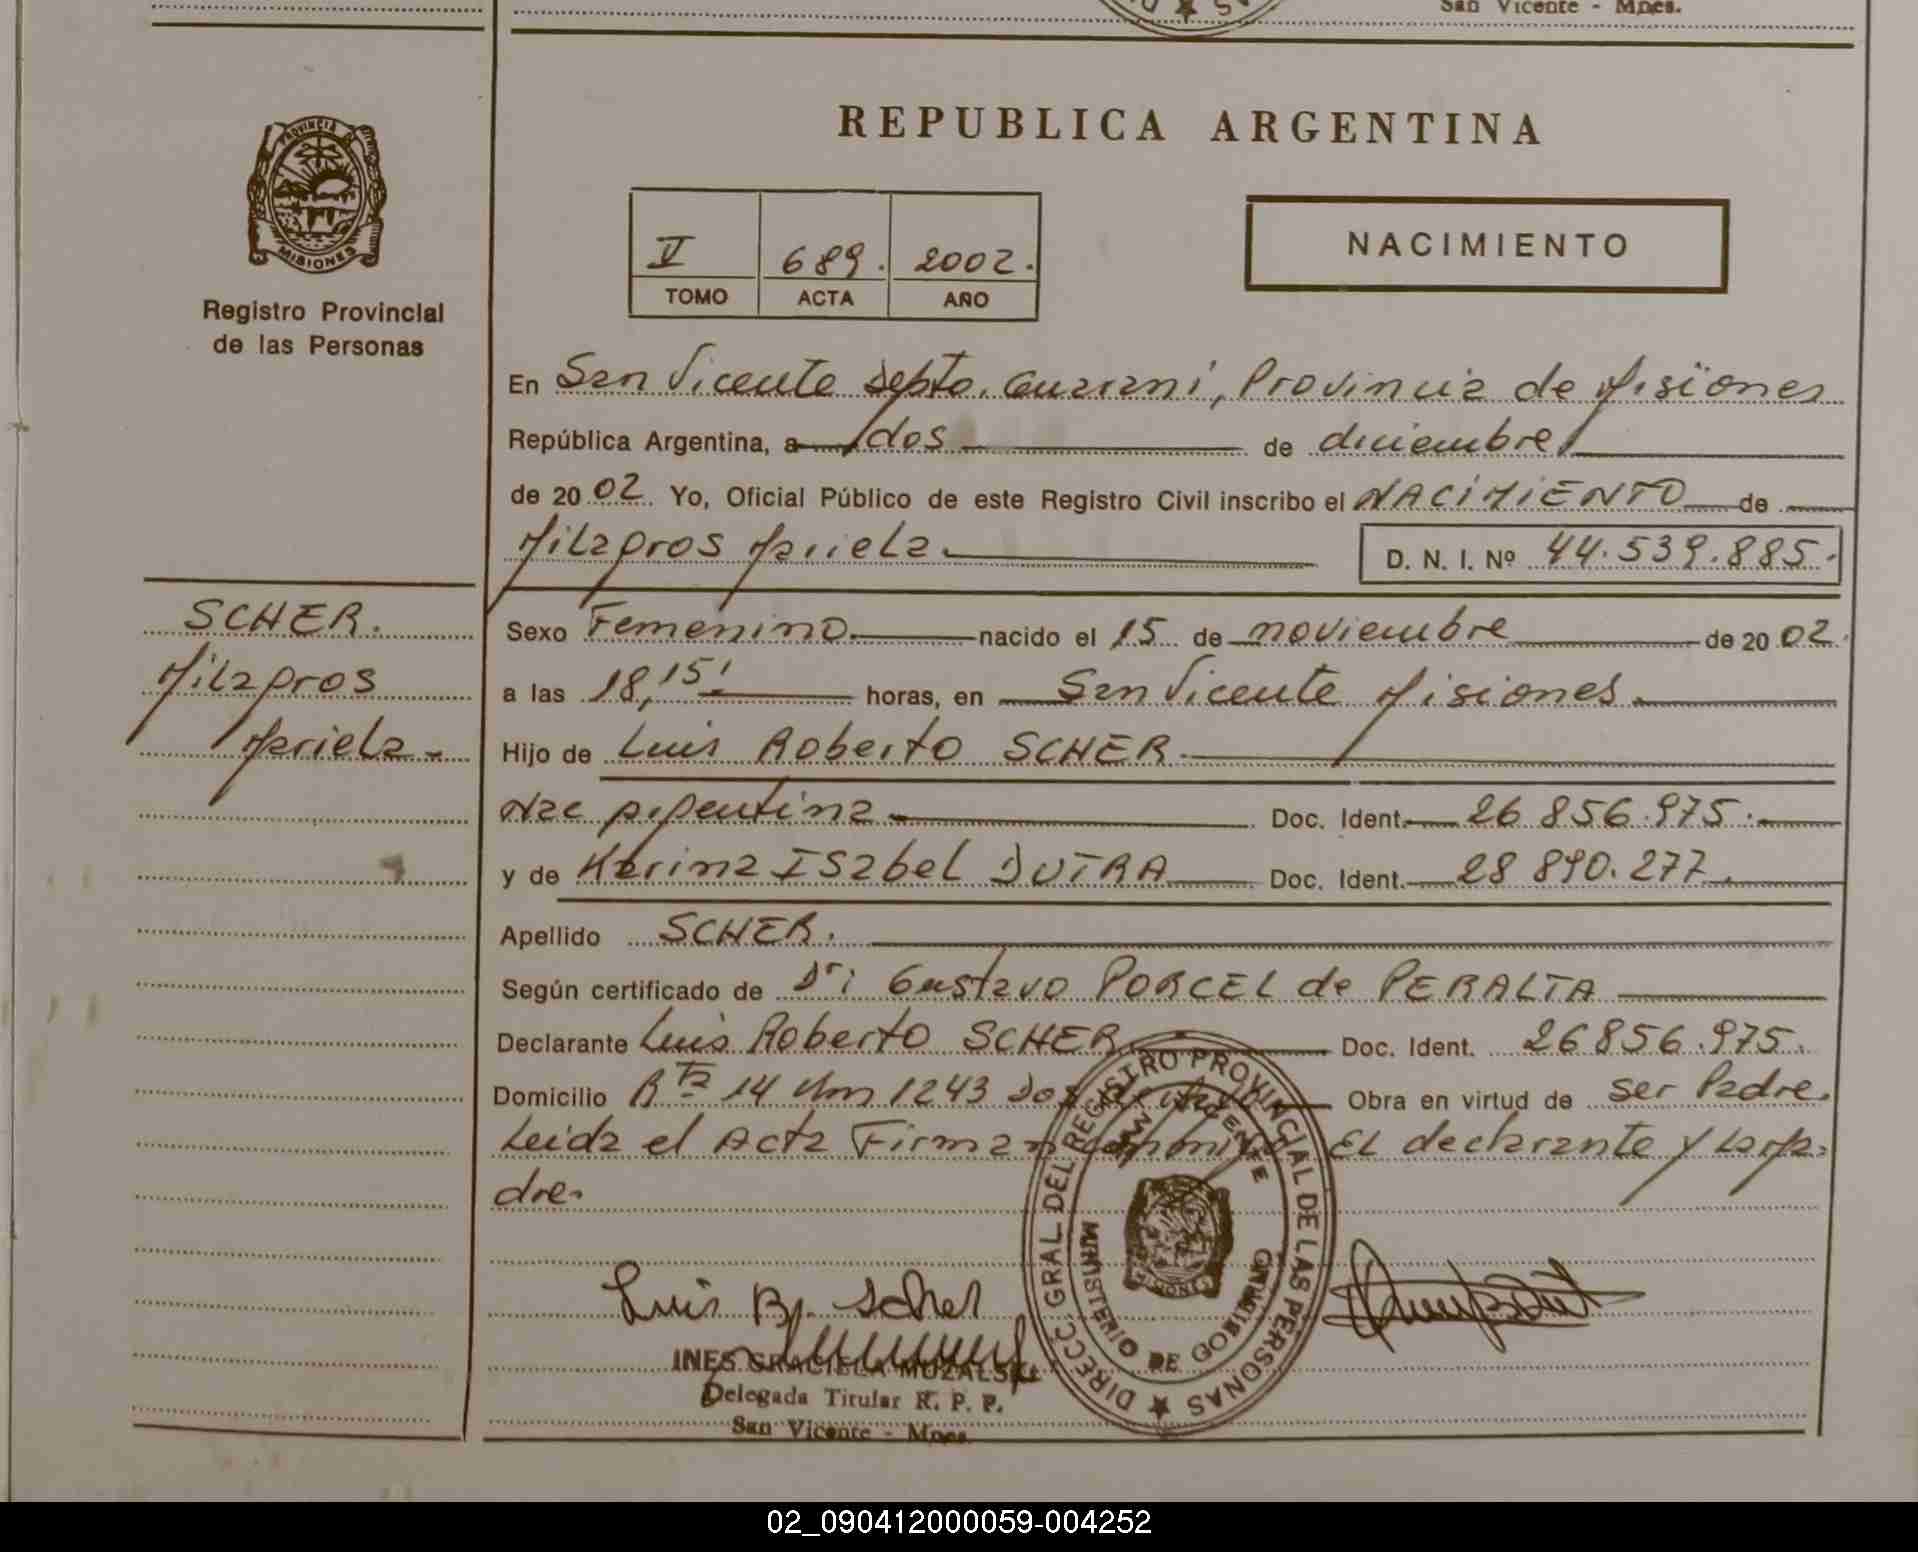 San Vicente - Mnes.
REPUBLICA ARGENTINA
PROVINCIA DE
MISIONES
Registro Provincial
de las Personas
V 689. 2002.
TOMO ACTA AÑO
NACIMIENTO
En San Vicente Depto. Guarani, Provincia de Misiones
República Argentina, a dos de diciembre
de 2002. Yo, Oficial Público de este Registro Civil inscribo el NACIMIENTO de
Milagros Mariela. D. N. I. Nº 44.539.885.
SCHER.
Milagros
Mariela.-
Sexo Femenino nacido el 15 de noviembre de 2002.
a las 18,15' horas, en San Vicente Misiones.
Hijo de Luis Roberto SCHER.
Nac Argentina Doc. Ident. 26 856.975.
y de Karina ISabel DUTRA Doc. Ident. 28 890.277.
Apellido SCHER.
Según certificado de Dr: Gustavo PORCEL de PERALTA
Declarante Luis Roberto SCHER Doc. Ident. 26856.975.
Domicilio Rta 14 Km 1243 Dos Obra en virtud de ser Padre.
Leida el Acta Firman conmigo EL declarante y la Ma-
dre.
DIRECC. GRAL. DEL REGISTRO PROVINCIAL DE LAS PERSONAS
SAN VICENTE
MINISTERIO DE GOBIERNO
MISIONES
Luis R. Scher
INES GRACIELA MUZALSKI
Delegada Titular R. P. P.
San Vicente - Mnes.
02_090412000059-004252